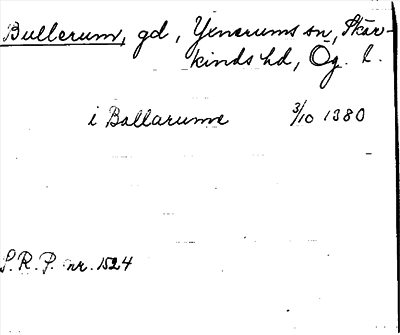 Bullerum, gd, Yxnerums sn, Skär-
kinds hd, Ög. l.
i Ballarume 3/10 1380
S.R.P. nr. 1524